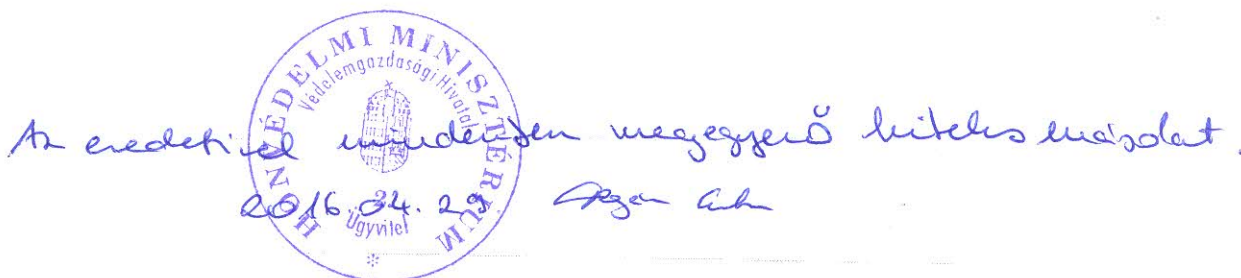 HONVÉDELMI MINISZTÉRIUM
Védelemgazdasági Hivatal
Az eredetivel mindenben megegyező hiteles másolat.
2016.04.29
Ügyvitel